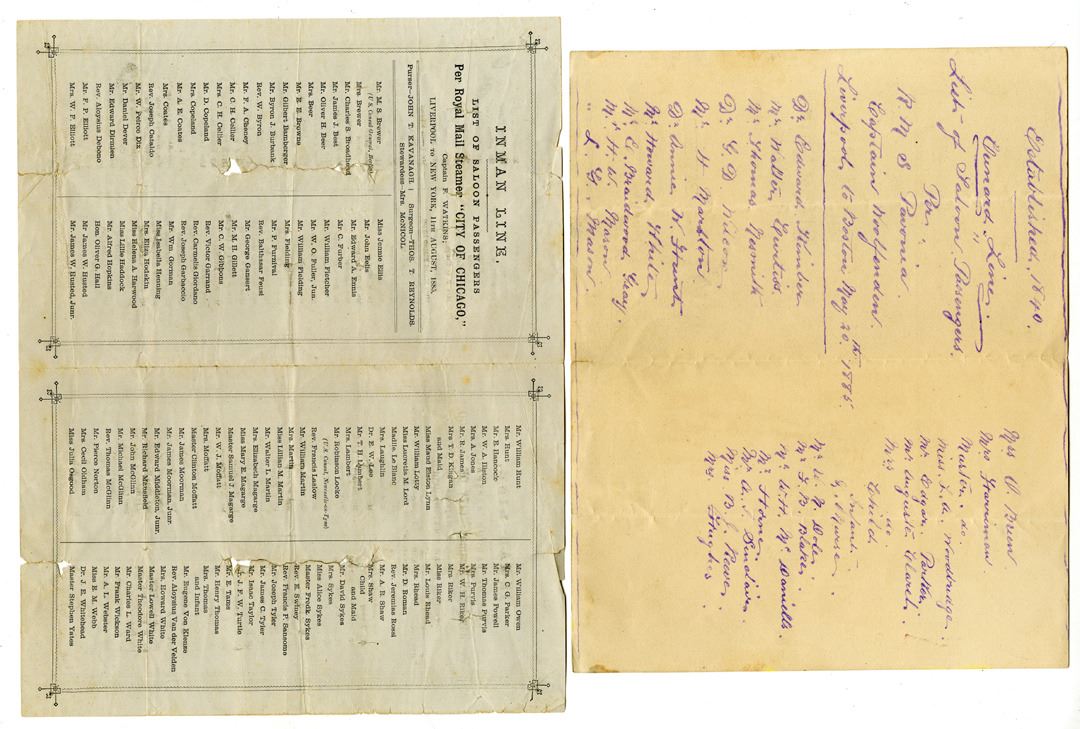 INMAN LINE.
LIST OF SALOON PASSENGERS
Per Royal Mail Steamer "CITY OF CHICAGO,"
Captain F. WATKINS;
LIVERPOOL to NEW YORK, 11TH AUGUST, 1885.
Purser—JOHN T. KAVANAGH | Surgeon—THOS. T. REYNOLDS.
Stewardess—Mrs. McNICOL.
Mr. M. S. Brewer
(U.S. Consul General, Berlin)
Mrs Brewer
Mr. Charles S. Broadhead
Mr. James T. Best
Mr. Oliver H. Beer
Mrs. Beer
Mr. E. E. Browne
Mr. Gilbert Bamberger
Mr. Byron J. Burbank
Rev. W. Byron
Mr. F. A. Cheney
Mr. C. H. Collier
Mrs. C. H. Collier
Mr. D. Copeland
Mrs Copeland
Mr. A. E. Coates
Mrs. Coates
Rev. Joseph Cataldo
Mr. W. Percc Dix
Mr. Daniel Dever
Mr. Edward Dienlen
Rev. Aloysius Debono
Mr. F. P. Elliott
Mrs. W. F. Elliott
Miss Jennie Ellis
Mr. John Eglis
Mr. Edward A. Ennis
Mr. C. Furber
Mr. William Fletcher
Mr. W. O. Fuller, Jun.
Mr. William Fielding
Mrs. Fielding
Mr. P. Furnival
Rev. Balthasar Feusi
Mr. George Gamsert
Mr. M. H. Gillett
Mr. C. W. Gibbons
Rev. Victor Garrand
Rev. Carmelis Giordano
Rev. Joseph Garbaccio
Mr. Wm. Gorman
Miss Isabella Henning
Mrs. Eliza Hodskin
Miss Helena A. Harwood
Miss Lillie Haddock
Mr. Alfred Hopkins
Hon. Oliver G. Hall
Mr. James W. Husted
Mr. James W. Husted, Junr.
Mr. William Hunt
Mrs. Hunt
Mr. E. Hancock
Mr. W. A. Ilston
Mrs. A. Jones
Mr. R. James
Mrs T. D. Killgan
and Maid
Miss Maud Elston Lynn
Mr. William Lotty
Miss Lucretia M. Lord
Madlle. Le Blanc
Mrs. Laughlin
Dr. E. W. Lee
Mr. T. H. Lambert
Mrs. Lambert
Mr. Robinson Locke
(U.S. Consul, Newcastle-on-Tyne)
Rev. Francis Laslow
Mr. William Martin
Mrs. Martin
Miss Lillian M. Martin
Mr. Walter L. Martin
Mrs. Elizabeth Magarge
Miss Mary E. Magarge
Master Samuel J. Magarge
Mr. W. J. Moffatt
Mrs. Moffatt
Master Clinton Moffatt
Mr. James Moorman
Mr. James Moorman, Junr.
Mr. Edward Middleton, Junr.
Mr. Richard Mansfield
Mr. John McGinn
Mr. Michael McGinn
Rev. Thomas McGinn
Mr. Pierce Norton
Mrs. Cecil Oldham
Miss Julia Osgood
Mr. William Owen
Mrs C. G. Parker
Mr. James Powell
Mr. Thomas Purvis
Mrs Purvis
Mr. W. H. Riker
Mrs. Riker
Miss Riker
Mr. Louis Rhead
Mrs. Rhead
Mr. D. Roman
Rev. Jeremum Rossi
Mr. A. B. Shaw
Mrs. Shaw
Child
and Maid
Mr. David Sykes
Mrs. Sykes
Miss Alice Sykes
Master Fredk Sykes
Rev. E. Swiney
Rev. Francis F. Sansome
Mr. Joseph Tyler
Mr. James C. Tyler
Mr. Isaac Taylor
Mr. J. F. W. Turtle
Mr. E. Tams
Mr. Henry Thomas
Mrs. Thomas
and Infant
Mr. Eugene Von Klenze
Rev. Aloysius Van der Velden
Mrs. Howard White
Master Lowell White
Master Theodore White
Mr. Charles L. Ward
Mr. Frank Wickson
Mr. A. L. Webster
Miss E. M. Webb
Dr. J. E. Whitehead
Master Stephen Yates
Established, 1840.
Cunard Line.
List of Saloon Passengers.
Per
R M S Pavonia.
Captain Woffenden.
Liverpool to Boston May 20th 1885.
Dr. Edward
Mr. Walter
Mr. Thomas
Dr. G D
Mr. H Marston
Dr. Annie W
Mr. Howard White
Mr. E. Braidwood
Mr. H. W. Mason
" L. G. Mason.
Mrs O Brien
Mrs Harriman
Master do.
Miss F. A. Woodbridge.
Mr. Edgar Parker.
Mr. Auguste
Mrs do
Child
Infant
& Nurse
Mr. F. B. Blake.
Mr. Horne
Mr. A. Sinclair.
Miss B. J.
Mrs Hughes